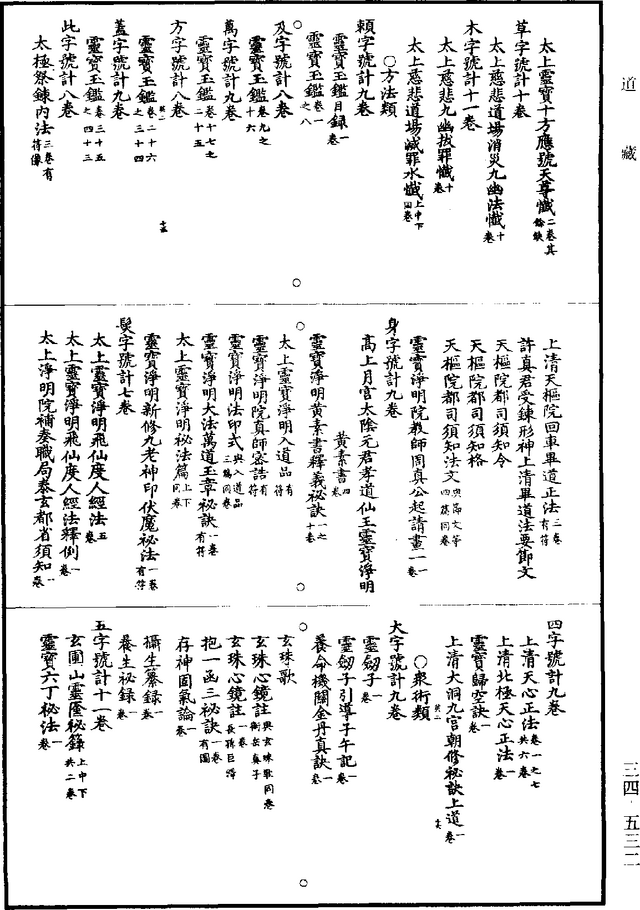 道藏
太上靈寶十方應號天尊懺二卷其餘缺
草字號計十卷
太上慈悲道場消災九幽法懺十卷
木字號計十一卷
太上慈悲九幽拔罪懺十卷
太上慈悲道場滅罪水懺上中下同卷
○方法類
賴字號計九卷
靈寶玉鑑目錄一卷
靈寶玉鑑卷一之八
及字號計八卷
靈寶玉鑑卷九之十六
萬字號計九卷
靈寶玉鑑卷十七之二十五
方字號計八卷
靈寶玉鑑卷二十六之三十四
蓋字號計九卷
靈寶玉鑑卷三十五之四十三
此字號計八卷
太極祭鍊內法三卷有符像
上清天樞院回車畢道正法三卷有符
許真君受鍊形神上清畢道法要節文
天樞院都司須知令
天樞院都司須知格
天樞院都司須知法文與節文等四篇同卷
靈寶淨明院教師周真公起請畫一一卷
身字號計九卷
高上月宮太陰元君孝道仙王靈寶淨明
黃素書四卷
靈寶淨明黃素書釋義秘訣一之十卷
太上靈寶淨明入道品有符
靈寶淨明院真師密誥有符
靈寶淨明法印式與入道品三篇同卷
靈寶淨明大法萬道玉章秘訣一卷有符
太上靈寶淨明秘法篇上下同卷
靈寶淨明新修九老神印伏魔祕法一卷有符
髮字號計七卷
太上靈寶淨明飛仙度人經法五卷
太上靈寶淨明飛仙度人經法釋例一卷
太上淨明院補奏職局泰玄都省須知一卷
四字號計九卷
上清天心正法卷一之七共六卷
上清北極天心正法一卷
靈寶歸空訣一卷
上清大洞九宮朝修祕訣上道一卷
○衆術類
大字號計九卷
靈劒子一卷
靈劒子引導子午記一卷
養命機關金丹真訣一卷
玄珠歌
玄珠心鏡註與玄珠歌同卷衡岳真子
玄珠心鏡註一卷長孫巨澤
抱一函三祕訣一卷有圖
存神固氣論一卷
攝生纂錄一卷
養生祕錄一卷
五字號計十一卷
玄圃山靈𠥎秘籙上中下共二卷
靈寶六丁秘法一卷
三四·五三二